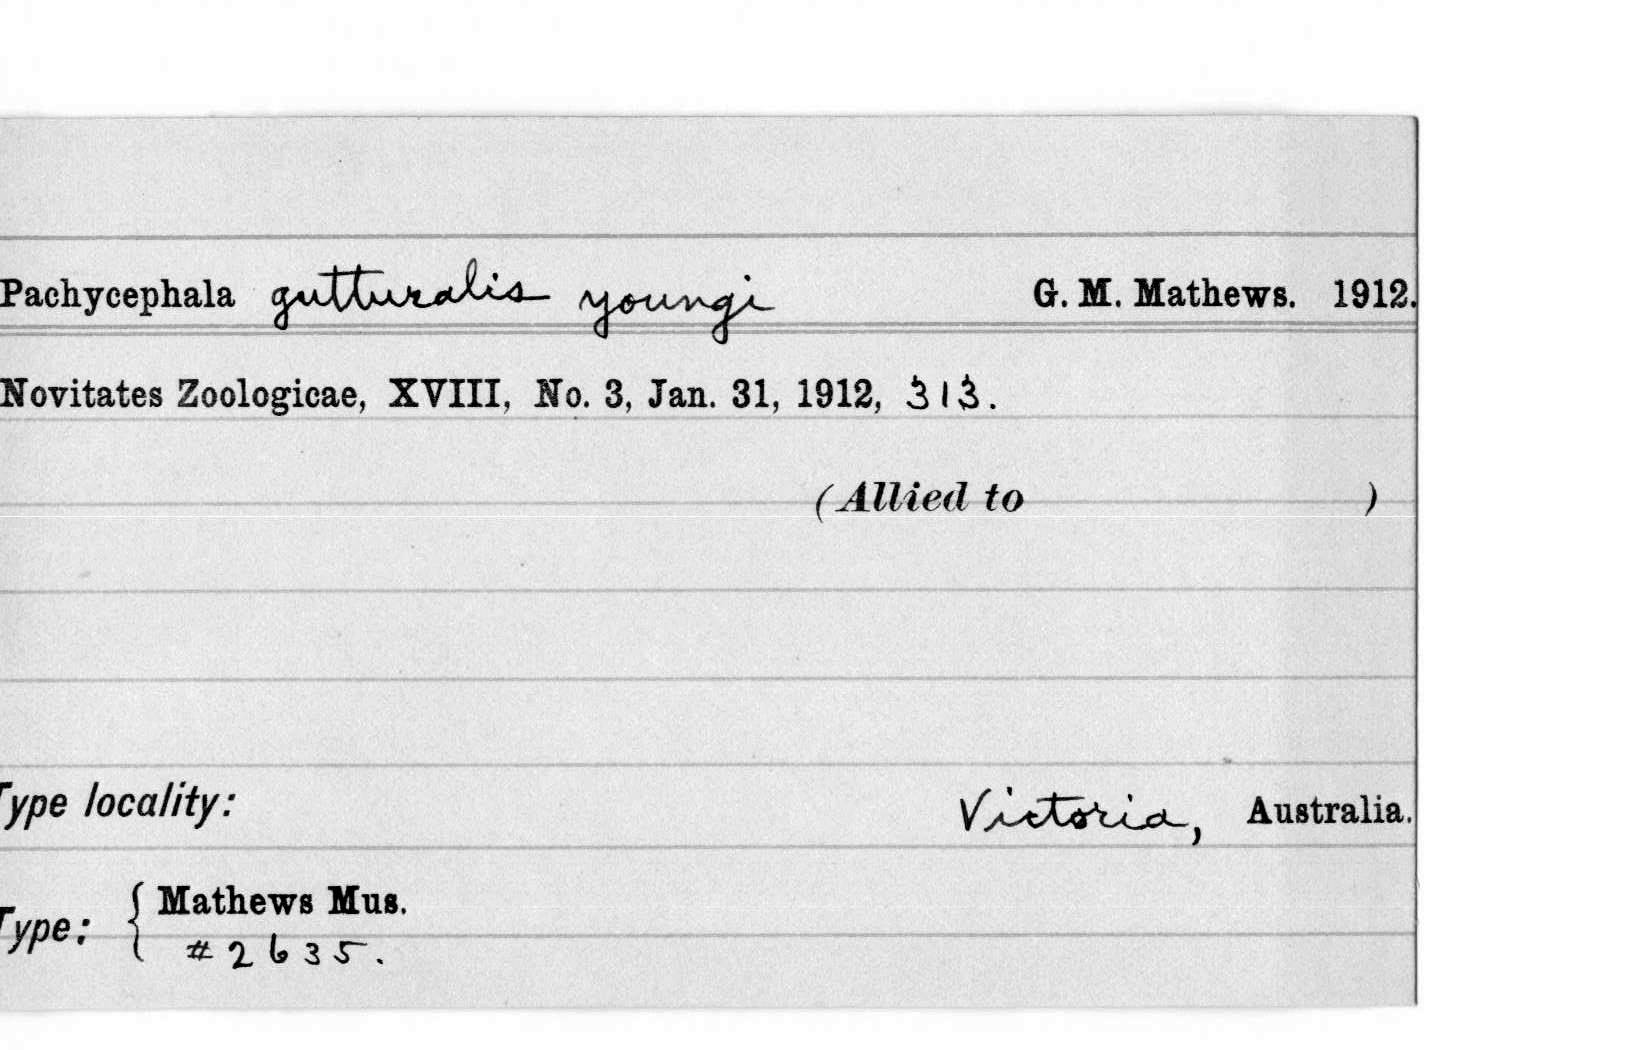 Pachycephala gutturalis youngi G. M. Mathews. 1912.
Novitates Zoologicae, XVIII, No. 3, Jan. 31, 1912, 313.
(Allied to )
Type locality: Victoria, Australia.
Type: { Mathews Mus.
#2635.